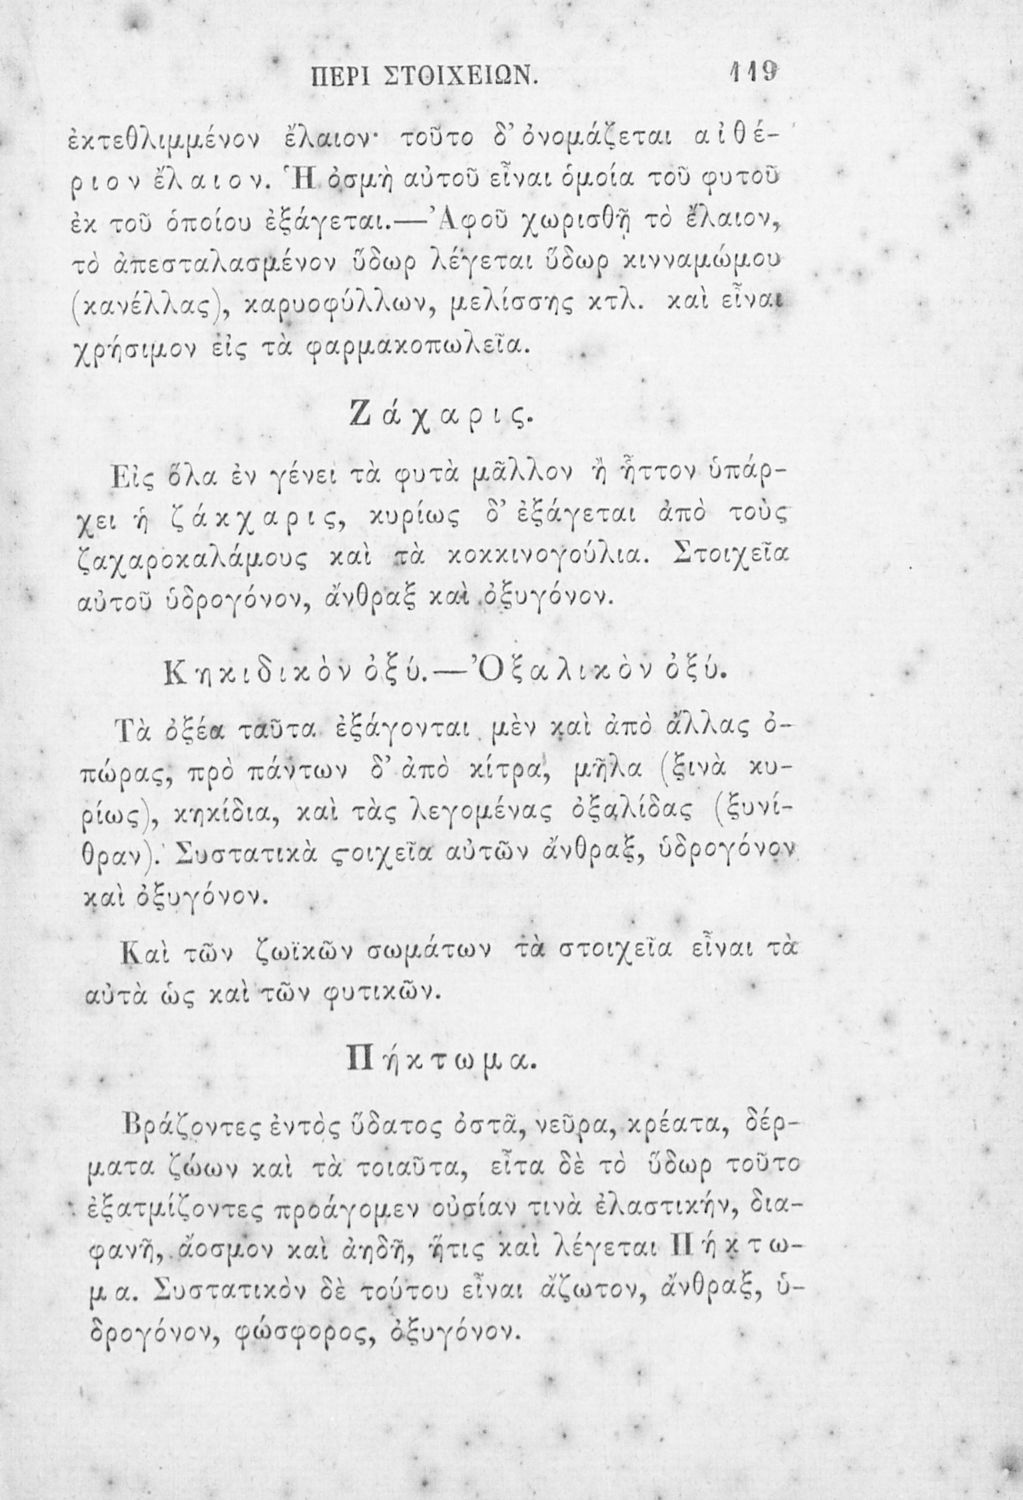 ΠΕΡΙ ΣΤΟΙΧΕΙΩΝ. 119
ἐκτεθλιμμένον ἔλαιον· τοῦτο δ’ ὀνομάζεται αἰθέ-
ριον ἔλαιον. Ἡ ὀσμὴ αὐτοῦ εἶναι ὁμοία τοῦ φυτοῦ
ἐκ τοῦ ὁποίου ἐξάγεται.—Ἀφοῦ χωρισθῇ τὸ ἔλαιον,
τὸ ἀπεσταλασμένον ὕδωρ λέγεται ὕδωρ κινναμώμου
(κανέλλας), καρυοφύλλων, μελίσσης κτλ. καὶ εἶναι
χρήσιμον εἰς τὰ φαρμακοπωλεῖα.
Ζάχαρις.
Εἰς ὅλα ἐν γένει τὰ φυτὰ μᾶλλον ἢ ἧττον ὑπάρ-
χει ἡ ζάκχαρις, κυρίως δ’ ἐξάγεται ἀπὸ τοὺς
ζαχαροκαλάμους καὶ τὰ κοκκινογούλια. Στοιχεῖα
αὐτοῦ ὑδρογόνον, ἄνθραξ καὶ ὀξυγόνον.
Κηκιδικὸν ὀξύ.—Ὀξαλικὸν ὀξύ.
Τὰ ὀξέα ταῦτα ἐξάγονται μὲν καὶ ἀπὸ ἄλλας ὀ-
πώρας, πρὸ πάντων δ’ ἀπὸ κίτρα, μῆλα (ξινὰ κυ-
ρίως), κηκίδια, καὶ τὰς λεγομένας ὀξαλίδας (ξυνί-
θραν). Συστατικὰ ϛοιχεῖα αὐτῶν ἄνθραξ, ὑδρογόνον
καὶ ὀξυγόνον.
Καὶ τῶν ζωϊκῶν σωμάτων τὰ στοιχεῖα εἶναι τὰ
αὐτὰ ὡς καὶ τῶν φυτικῶν.
Πήκτωμα.
Βράζοντες ἐντὸς ὕδατος ὀστᾶ, νεῦρα, κρέατα, δέρ-
ματα ζώων καὶ τὰ τοιαῦτα, εἶτα δὲ τὸ ὕδωρ τοῦτο
ἐξατμίζοντες προάγομεν οὐσίαν τινὰ ἐλαστικήν, δια-
φανῆ, ἄοσμον καὶ ἀηδῆ, ἥτις καὶ λέγεται Πήκτω-
μα. Συστατικὸν δὲ τούτου εἶναι ἄζωτον, ἄνθραξ, ὑ-
δρογόνον, φώσφορος, ὀξυγόνον.